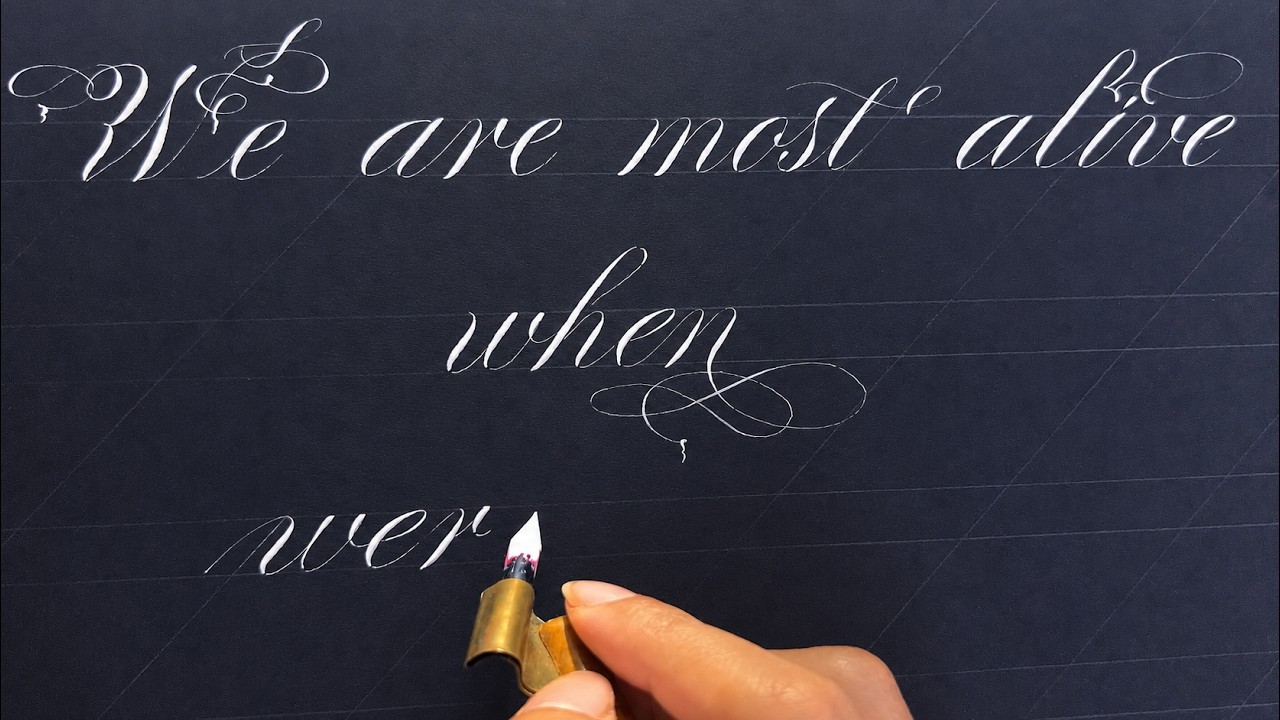 We are most alive
when
wer